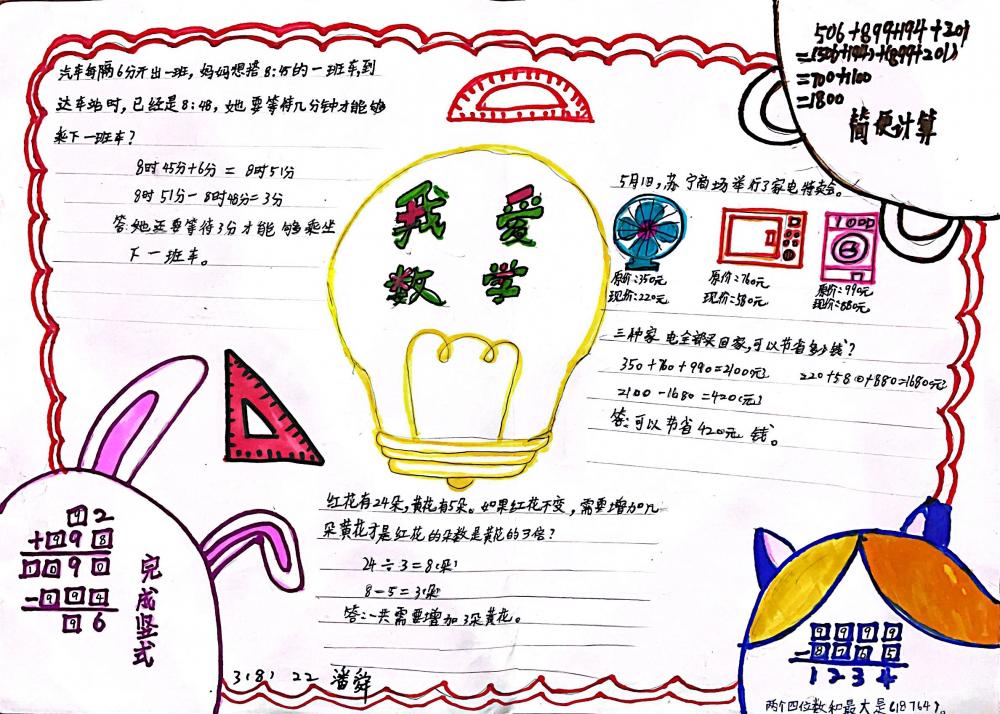 汽车每隔6分开出一班，妈妈想搭8:45的一班车，到
达车站时，已经是8:48，她要等待几分钟才能够
乘下一班车？
8时45分+6分＝8时51分
8时51分－8时48分＝3分
答：她还要等待3分才能够乘坐
下一班车。
我爱
数学
506+899+194+201
=(506+194)+(899+201)
=700+1100
=1800
简便计算
5月1日，苏宁商场举行了家电特卖会。
原价：350元
现价：220元
原价：760元
现价：580元
原价：990元
现价：880元
三种家电全部买回家，可以节省多少钱？
350+760+990=2100(元)
220+580+880=1680(元)
2100-1680=420(元)
答：可以节省420元钱。
红花有24朵，黄花有5朵。如果红花不变，需要增加几
朵黄花才是红花的朵数是黄花的3倍？
24÷3=8(朵)
8-5=3(朵)
答：一共需要增加3朵黄花。
92
+998
1090
-994
96
完成竖式
3(8) 22 潘舜
9999
-8765
1234
两个四位数和最大是(18764)。